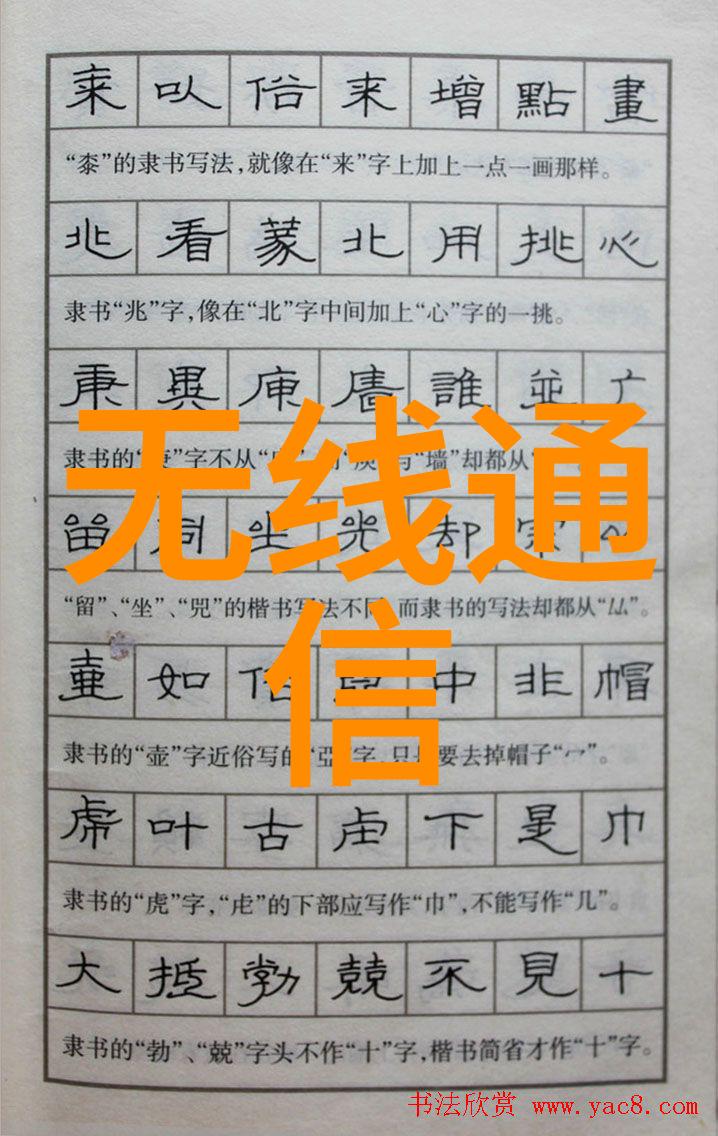 桼以俗来增點畫
“桼”的隶书写法,就像在“来”字上加上一点一画那样。
兆看蒙北用挑心
隶书“兆”字,像在“北”字中间加上“心”字的一挑。
庚異廧誰並广
隶书的“庚”字不从 与“墙”却都从“
留坐却
“留”、“坐”、“咒”的楷书写法不同,而隶书的写法却都从“厸”。
壷如俗中非帽
隶书的“壶”字近俗写的“亞”字,只是要去掉帽子“宀”。
虎叶古虍下是巾
隶书的“虎”字,“虍”的下部应写作“巾”,不能写作“几”。
大抵勃兢不見十
隶书的“勃”、“兢”字头不作“十”字,楷书简省才作“十”字。
无线通
信
书法欣赏 www.yac8.com